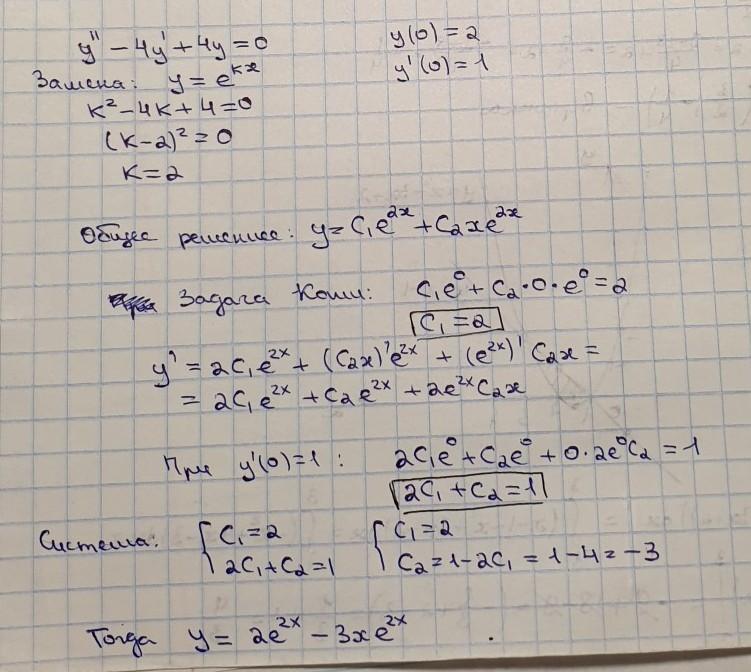 y'' − 4y' + 4y = 0
y(0) = 2
Замена: y = e^{kx}
y'(0) = 1
k² − 4k + 4 = 0
(k − 2)² = 0
k = 2
Общее решение: y = C₁e^{2x} + C₂xe^{2x}
Задача Коши: C₁e⁰ + C₂·0·e⁰ = 2
C₁ = 2
y' = 2C₁e^{2x} + (C₂x)'e^{2x} + (e^{2x})'C₂x =
= 2C₁e^{2x} + C₂e^{2x} + 2e^{2x}C₂x
При y'(0) = 1: 2C₁e⁰ + C₂e⁰ + 0·2e⁰C₂ = 1
2C₁ + C₂ = 1
Система: { C₁ = 2 { C₁ = 2
2C₁ + C₂ = 1 C₂ = 1 − 2C₁ = 1 − 4 = −3
Тогда y = 2e^{2x} − 3xe^{2x} .